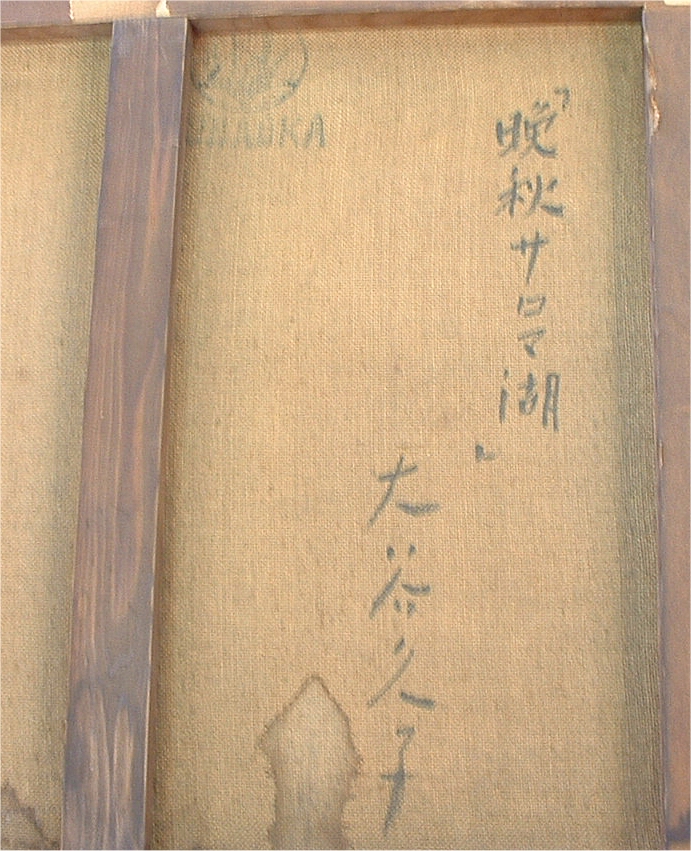 「晩秋サロマ湖」
大谷久子